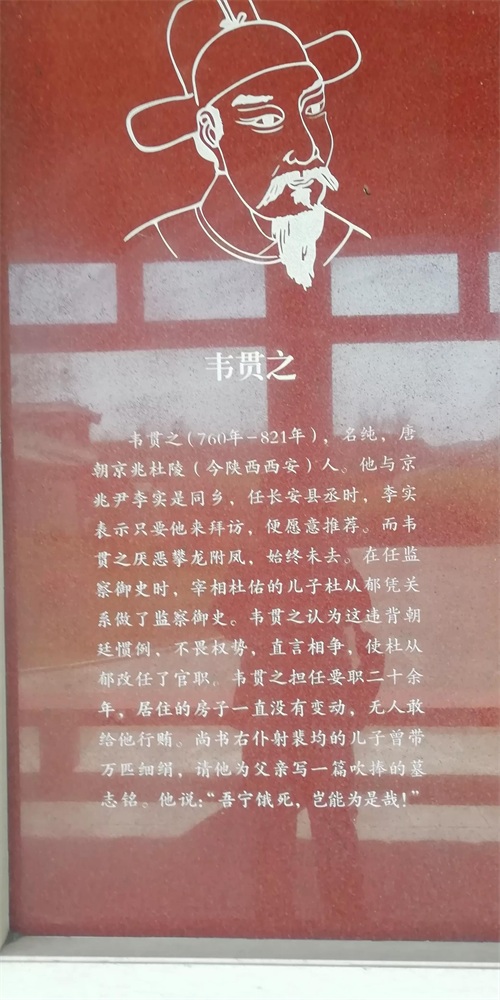 韦贯之
韦贯之（760年－821年），名纯，唐
朝京兆杜陵（今陕西西安）人。他与京
兆尹李实是同乡，任长安县丞时，李实
表示只要他来拜访，便愿意推荐。而韦
贯之厌恶攀龙附凤，始终未去。在任监
察御史时，宰相杜佑的儿子杜从郁凭关
系做了监察御史。韦贯之认为这违背朝
廷惯例，不畏权势，直言相争，使杜从
郁改任了官职。韦贯之担任要职二十余
年，居住的房子一直没有变动，无人敢
给他行贿。尚书右仆射裴均的儿子曾带
万匹细绢，请他为父亲写一篇吹捧的墓
志铭。他说：“吾宁饿死，岂能为是哉！”